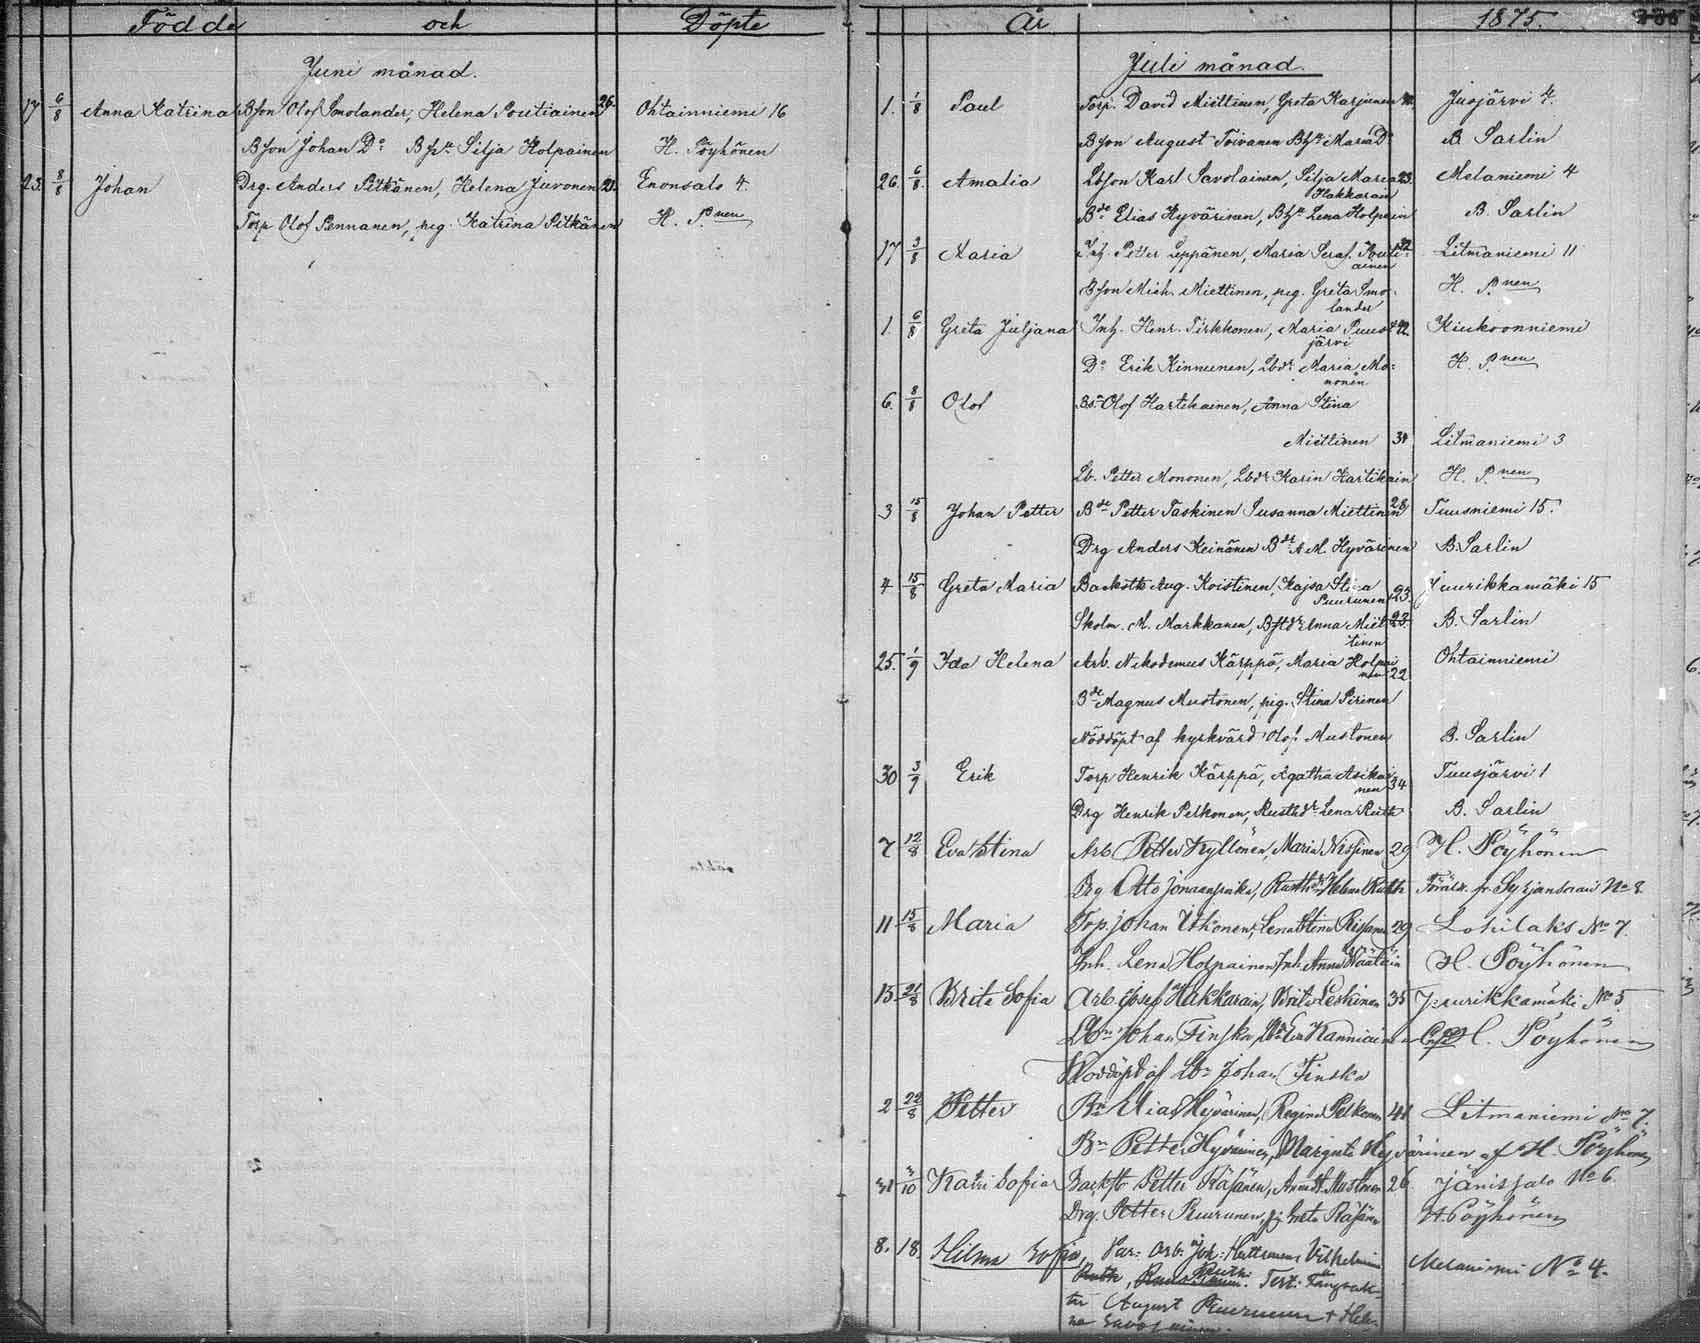 Födde och Döpte
Juni månad.
17 6/8 Anna Katrina Bson Olof Smolander, Helena Poutiainen 26. Ohtainniemi 16
Bson Johan Do Silja Holpainen H. Pöyhönen
23. 8/8 Johan Drg. Anders Pitkänen, Helena Juvonen 21. Enonsalo 4.
Torp Olof Pennanen, pig. Katrina Pitkänen H. P.nen
År 1875.
Juli månad.
1. 1/8 Paul Torp. David Miettinen, Greta Karjunen Jusjärvi 4.
Bson August Toivanen Maria Do B. Sarlin
26. 6/8 Amalia Lbson Karl Savolainen, Silja Maria 23. Melaniemi 4
Hakkarain
Bde Elias Hyvärinen, Lena Holpain B. Sarlin
17 3/8 Maria Inh. Petter Leppänen, Maria Seraf. Pouti= 32 Litmaniemi 11
ainen
Bson Mich. Miettinen, pig. Greta Smo- H. P.nen
lander
1. 6/8 Greta Juljana Inh. Henr. Pirkkonen, Maria Puus 42. Kiukoonniemi
järvi
Do Erik Kinnunen, Lbdr Maria Mo= H. P.nen
nonen
6. 8/8 Olof Olof Hartikainen, Anna Stina
Miettinen 34 Litmaniemi 3
Lb. Petter Mononen, Lbdr Karin Hartikain H. P.nen
3 15/8 Johan Petter Bde Petter Taskinen Susanna Miettinen 28 Tuusniemi 15.
Drg Anders Keinänen Bdr A. M. Hyvärinen B. Sarlin
4 15/8 Greta Maria Backstk Aug. Koistinen, Kajsa Stina Juurikkamäki 15
Puurunen 23.
Skolm. M. Markkanen, Anna Miet 23. B. Sarlin
tinen
25. 1/9 Ida Helena Arb. Nikodemus Kärppä, Maria Holpai Ohtainniemi
nen 22
Bde Magnus Mustonen, pig. Stina Pirinen
Nöddöpt af kyrkvärd Olof Mustonen B. Sarlin
30 3/9 Erik Torp Henrik Kärppä, Agatha Asikai Tuusjärvi 1
nen 34
Drg Henrik Pelkonen, Lena Ruth B. Sarlin
7 12/8 Eva Stina Arb. Petter Kyllönen, Maria Nissinen 29 H. Pöyhönen
Drg Otto Helena Ruth No 8
11 15/8 Maria Torp. Johan Itkonen, Lena Stina Rissanen 29 Lohilaks No 7.
Inh. Lena Holpainen, Inh. Anna H. Pöyhönen
15 21/8 Brita Sofia Arb. Josef Hakkarain, Brita Leskinen 35 Juurikkamäki No 5.
Lbn Johan Finska, H. Pöyhönen
Nöddöpt af Lbn Johan Finska
2 22/8 Petter Bn Elias Hyvärinen, Regina Pelkonen 41 Litmaniemi No 7.
Bn Petter Hyvärinen, Margreta Hyvärinen af H. Pöyhönen
31 3/10 Katri Sofia Backst Petter Räsänen, Anna St. Mustonen 26 Jänissalo No 6.
Drg. Petter Puurunen, pig Greta Räsänen H. Pöyhönen
8. 18. Hilma Sofia, Par: Arb. Joh: Vilhelmina Melaniemi No 4.
Ruth, Test:
August Puurunen + Hele-
na